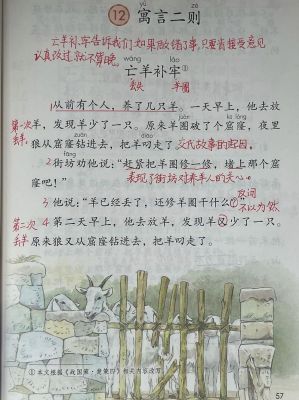 yù zé
12 寓言二则
亡羊补牢告诉我们,如果做错了事,只要肯接受意见
认真改过,就不算晚。
wáng láo
亡羊补牢①
丢失 羊圈
1从前有个人,养了几只羊。一天早上,他去放
第一次 羊,发现羊少了一只。原来羊圈破了个窟窿,夜里
丢羊
狼从窟窿钻进去,把羊叼走了。交代故事的起因。
2街坊劝他说:“赶紧把羊圈修一修,堵上那个窟
窿吧!” 表现了街坊对养羊人的关心。
3他说:“羊已经丢了,还修羊圈干什么?” 反问 不以为然
第二次 4第二天早上,他去放羊,发现羊又少了一只。
丢羊 原来狼又从窟窿钻进去,把羊叼走了。
①本文根据《战国策·楚策四》相关内容改写。
57